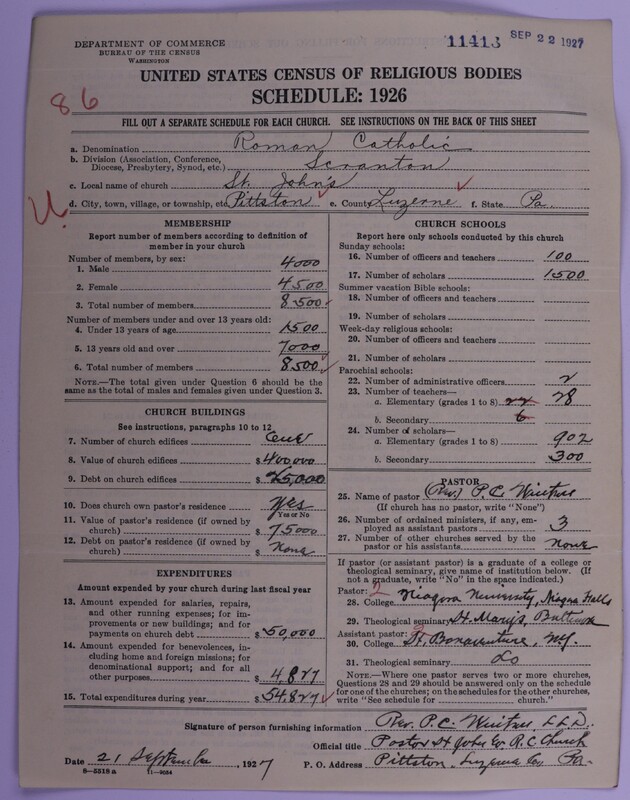 DEPARTMENT OF COMMERCE
BUREAU OF THE CENSUS
WASHINGTON
11413 SEP 22 1927
UNITED STATES CENSUS OF RELIGIOUS BODIES
SCHEDULE: 1926
86
FILL OUT A SEPARATE SCHEDULE FOR EACH CHURCH. SEE INSTRUCTIONS ON THE BACK OF THIS SHEET
a. Denomination Roman Catholic
b. Division (Association, Conference,
Diocese, Presbytery, Synod, etc.) Scranton
c. Local name of church St. John's
d. City, town, village, or township, etc. Pittston e. County Luzerne f. State Pa.
U.
MEMBERSHIP
Report number of members according to definition of
member in your church
Number of members, by sex:
1. Male 4000
2. Female 4500
3. Total number of members 8500
Number of members under and over 13 years old:
4. Under 13 years of age 1500
5. 13 years old and over 7000
6. Total number of members 8500
NOTE.—The total given under Question 6 should be the
same as the total of males and females given under Question 3.
CHURCH BUILDINGS
See instructions, paragraphs 10 to 12
7. Number of church edifices One
8. Value of church edifices $400,000
9. Debt on church edifices $25,000
10. Does church own pastor's residence Yes
Yes or No
11. Value of pastor's residence (if owned by
church) $75000
12. Debt on pastor's residence (if owned by
church) $ None
EXPENDITURES
Amount expended by your church during last fiscal year
13. Amount expended for salaries, repairs,
and other running expenses; for im-
provements or new buildings; and for
payments on church debt $50,000
14. Amount expended for benevolences, in-
cluding home and foreign missions; for
denominational support; and for all
other purposes $4,827
15. Total expenditures during year $54,827
CHURCH SCHOOLS
Report here only schools conducted by this church
Sunday schools:
16. Number of officers and teachers 100
17. Number of scholars 1500
Summer vacation Bible schools:
18. Number of officers and teachers
19. Number of scholars
Week-day religious schools:
20. Number of officers and teachers
21. Number of scholars
Parochial schools:
22. Number of administrative officers 2
23. Number of teachers—
a. Elementary (grades 1 to 8) 22 28
b. Secondary 6
24. Number of scholars—
a. Elementary (grades 1 to 8) 902
b. Secondary 300
PASTOR
25. Name of pastor (Rev.) P. C. Winters
(If church has no pastor, write "None")
26. Number of ordained ministers, if any, em-
ployed as assistant pastors 3
27. Number of other churches served by the
pastor or his assistants None
If pastor (or assistant pastor) is a graduate of a college or
theological seminary, give name of institution below. (If
not a graduate, write "No" in the space indicated.)
Pastor: 2
28. College Niagara University, Niagara Falls
29. Theological seminary St. Mary's, Baltimore
Assistant pastor:
30. College St. Bonaventure, N.Y.
31. Theological seminary Do
NOTE.—Where one pastor serves two or more churches,
Questions 28 and 29 should be answered only on the schedule
for one of the churches; on the schedules for the other churches,
write "See schedule for church."
Signature of person furnishing information Rev. P. C. Winters L.L.D.
Official title Pastor St John Ev. R. C. Church
Date 21 September, 1927 P. O. Address Pittston, Luzerne Co., Pa.
8—5518 a 11—9084